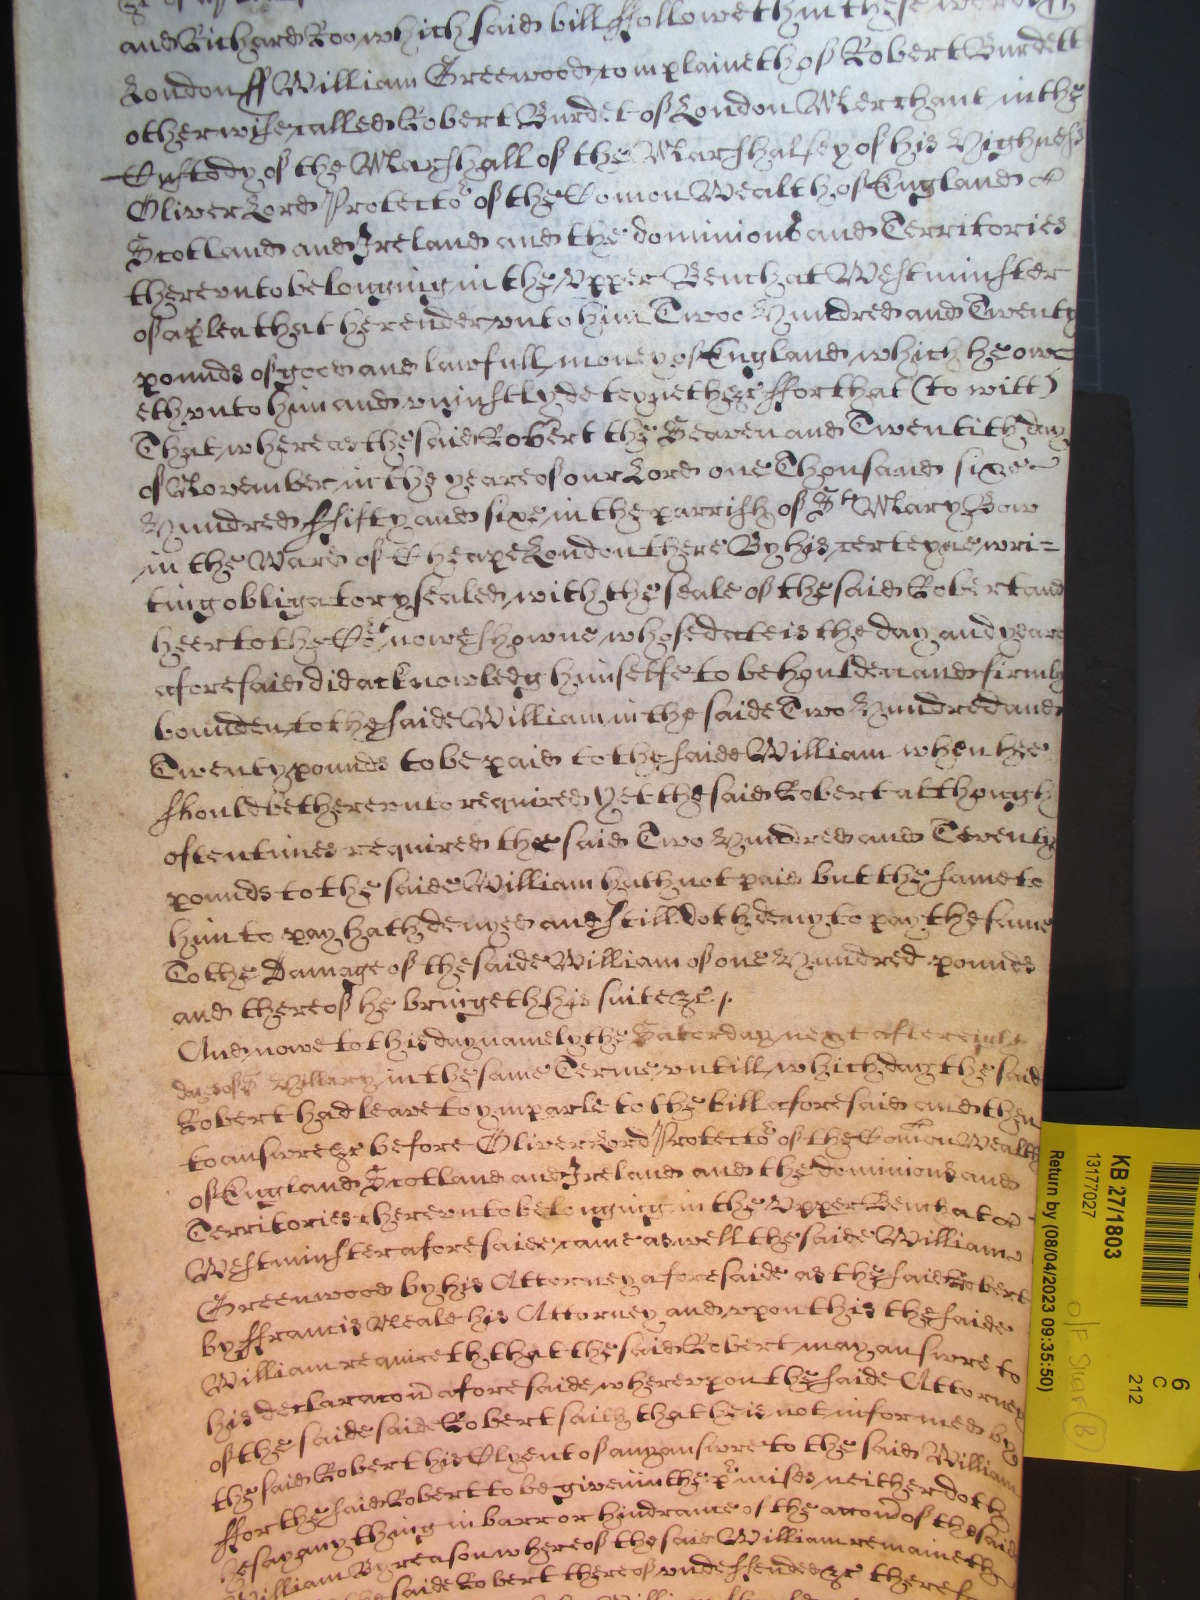 and Richard Roo which said bill ffolloweth in these wordes
London ss William Greewood complaineth of Robert Burdett
otherwise called Robert Burdet of London Merchant in the
Custody of the Marshall of the Marshalsey of his Highness
Oliver Lord Protector of the Comon Wealth of England
Scotland and Ireland and the dominions and Territories
thereunto belonging in the Upper Bench at Westminster
of a plea that he render unto him Twoo Hundred and Twenty
pounds of good and lawfull money of England which he ow=
eth unto him and uniustly deteyneth &c ffor that (to witt)
That whereas the said Robert the Seaven and Twentith day
of November in the yeare of our Lord one Thousand sixe
Hundred ffifty and sixe in the parrish of St Mary Bow
in the Ward of Cheape London there By his certeyne wri=
ting obligatory sealed with the seale of the said Robert and
heer to the Cort now shewne whose date is the day and yeare
aforesaid did acknowledg himselfe to be houlden and firmly
bounden to the saide William in the saide Two Hundred and
Twenty pounds to be paid to the saide William when hee
should be thereunto required Yet the said Robert although
oftentimes required the said Two Hundred and Twenty
pounds to the saide William hath not paid but the same to
him to pay hath denyed and still doth deny to pay the same
To the Damage of the saide William of one Hundred pounds
and thereof he bringeth his suite &c.
And nowe to this day namely the Saterday next after eight
dayes of St Hillary in the same Terme untill which day the said
Robert had leave to ymparle to the bill aforesaid and then
to answere &c before Oliver Lord Protector of the Comon Wealth
of England Scotland and Ireland and the dominions and
Territories thereunto belonging in the Upper Bench att
Westminster aforesaide came aswell the saide William
Greenwood by his Attorney aforesaide as the said Robert
by ffrancis Neale his Attorney and upon this the saide
William requireth that the said Robert may answre to
his declaracon aforesaide whereupon the saide Attorney
of the saide saide Robert saith that he is not informed by
the said Robert his Clyent of any answre to the said William
ffor the said Robert to be given in the prmises neither doth
he say any thing in barr or hindrance of the accon of the said
William By reason whereof the said William remaineth
the saide Robert thereof undeffended &c theref
6
C
212
KB 27/1803
13177027
Return by (08/04/2023 09:35:50)